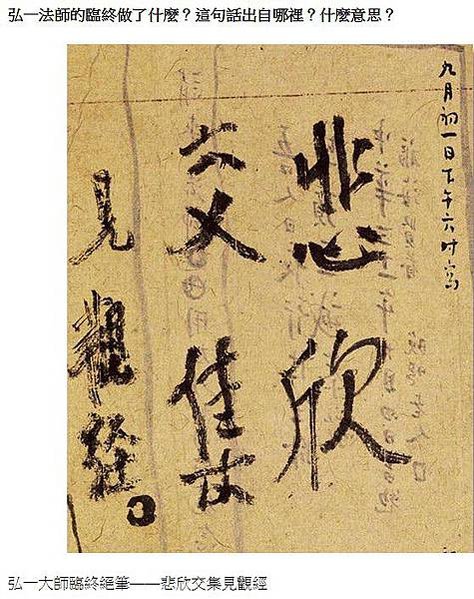 弘一法師的臨終做了什麼？這句話出自哪裡？什麼意思？
九月初一日下午六时寫
悲欣
交集
見觀經
弘一大師臨終絕筆——悲欣交集見觀經